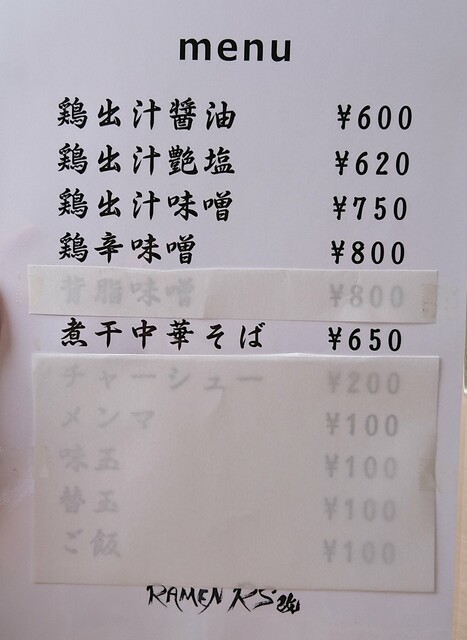 menu
鶏出汁醤油 ¥600
鶏出汁艶塩 ¥620
鶏出汁味噌 ¥750
鶏辛味噌 ¥800
背脂味噌 ¥800
煮干中華そば ¥650
チャーシュー ¥200
メンマ ¥100
味玉 ¥100
替玉 ¥100
ご飯 ¥100
RAMEN K'S 改